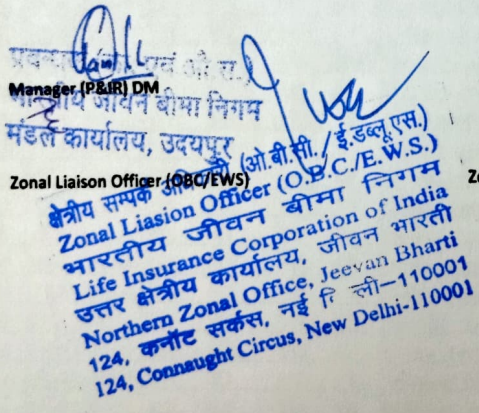 प्रबन्धक (का. एवं औ.स.)
Manager (P&IR) DM
भारतीय जीवन बीमा निगम
मंडल कार्यालय, उदयपुर
Zonal Liaison Officer (OBC/EWS)
क्षेत्रीय सम्पर्क (ओ.बी.सी./ई.डब्लू.एस.)
Zonal Liasion Officer (O.B.C./E.W.S.)
भारतीय जीवन बीमा निगम
Life Insurance Corporation of India
उत्तर क्षेत्रीय कार्यालय, जीवन भारती
Northern Zonal Office, Jeevan Bharti
124, कनॉट सर्कस, नई दि ली-110001
124, Connaught Circus, New Delhi-110001